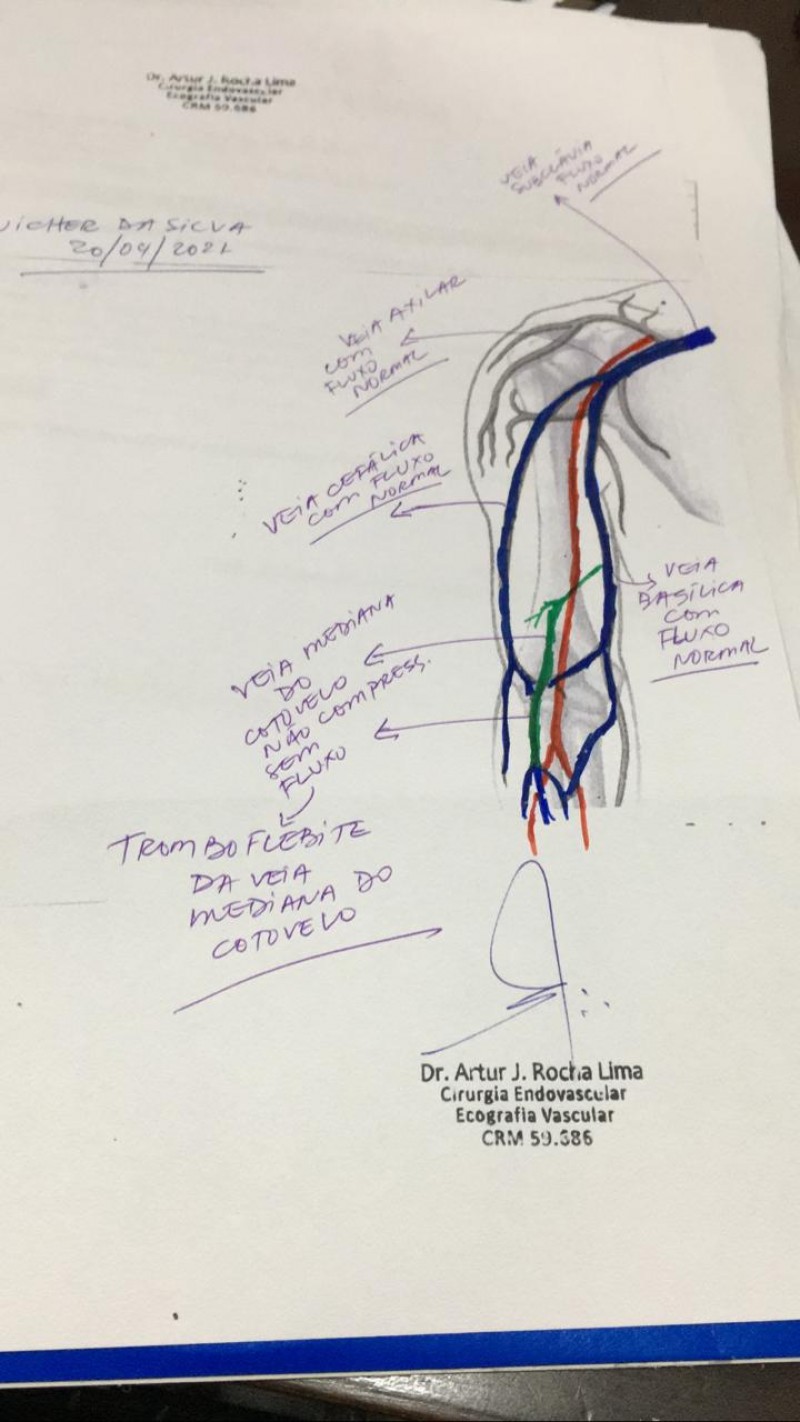 Dr. Artur J. Rocha Lima
Cirurgia Endovascular
Ecografia Vascular
CRM 59.686
DA SILVA
20/04/2021
VEIA
SUBCLÁVIA
FLUXO
NORMAL
VEIA AXILAR
COM
FLUXO
NORMAL
VEIA CEFÁLICA
COM FLUXO
NORMAL
VEIA
BASÍLICA
COM
FLUXO
NORMAL
VEIA MEDIANA
DO
COTOVELO
NÃO COMPRESS.
SEM
FLUXO
TROMBOFLEBITE
DA VEIA
MEDIANA DO
COTOVELO
Dr. Artur J. Rocha Lima
Cirurgia Endovascular
Ecografia Vascular
CRM 59.686